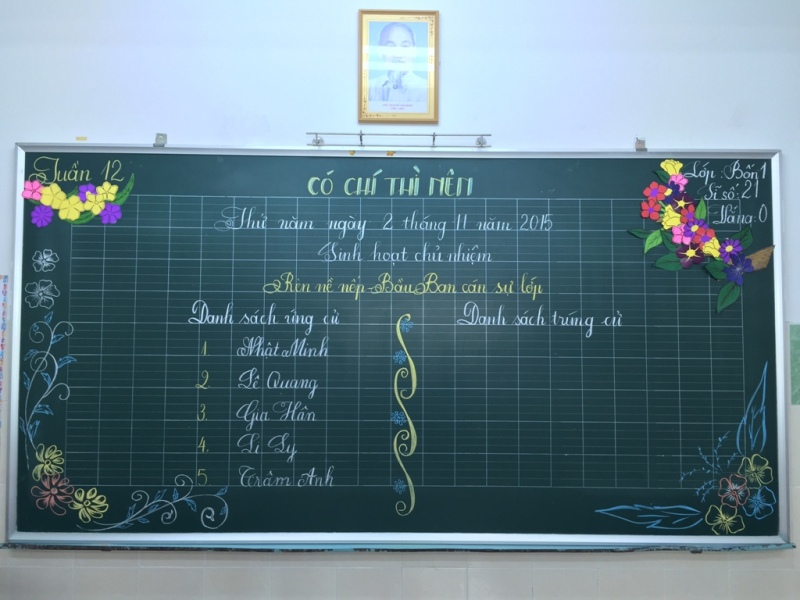 Tuần 12
CÓ CHÍ THÌ NÊN
Lớp : Bốn 1
Sĩ số: 21
Vắng: 0
Thứ năm ngày 2 tháng 11 năm 2015
Sinh hoạt chủ nhiệm
Rèn nề nếp - Bầu Ban cán sự lớp
Danh sách ứng cử
1. Nhật Minh
2. Lê Quang
3. Gia Hân
4. Li Ly
5. Trâm Anh
Danh sách trúng cử